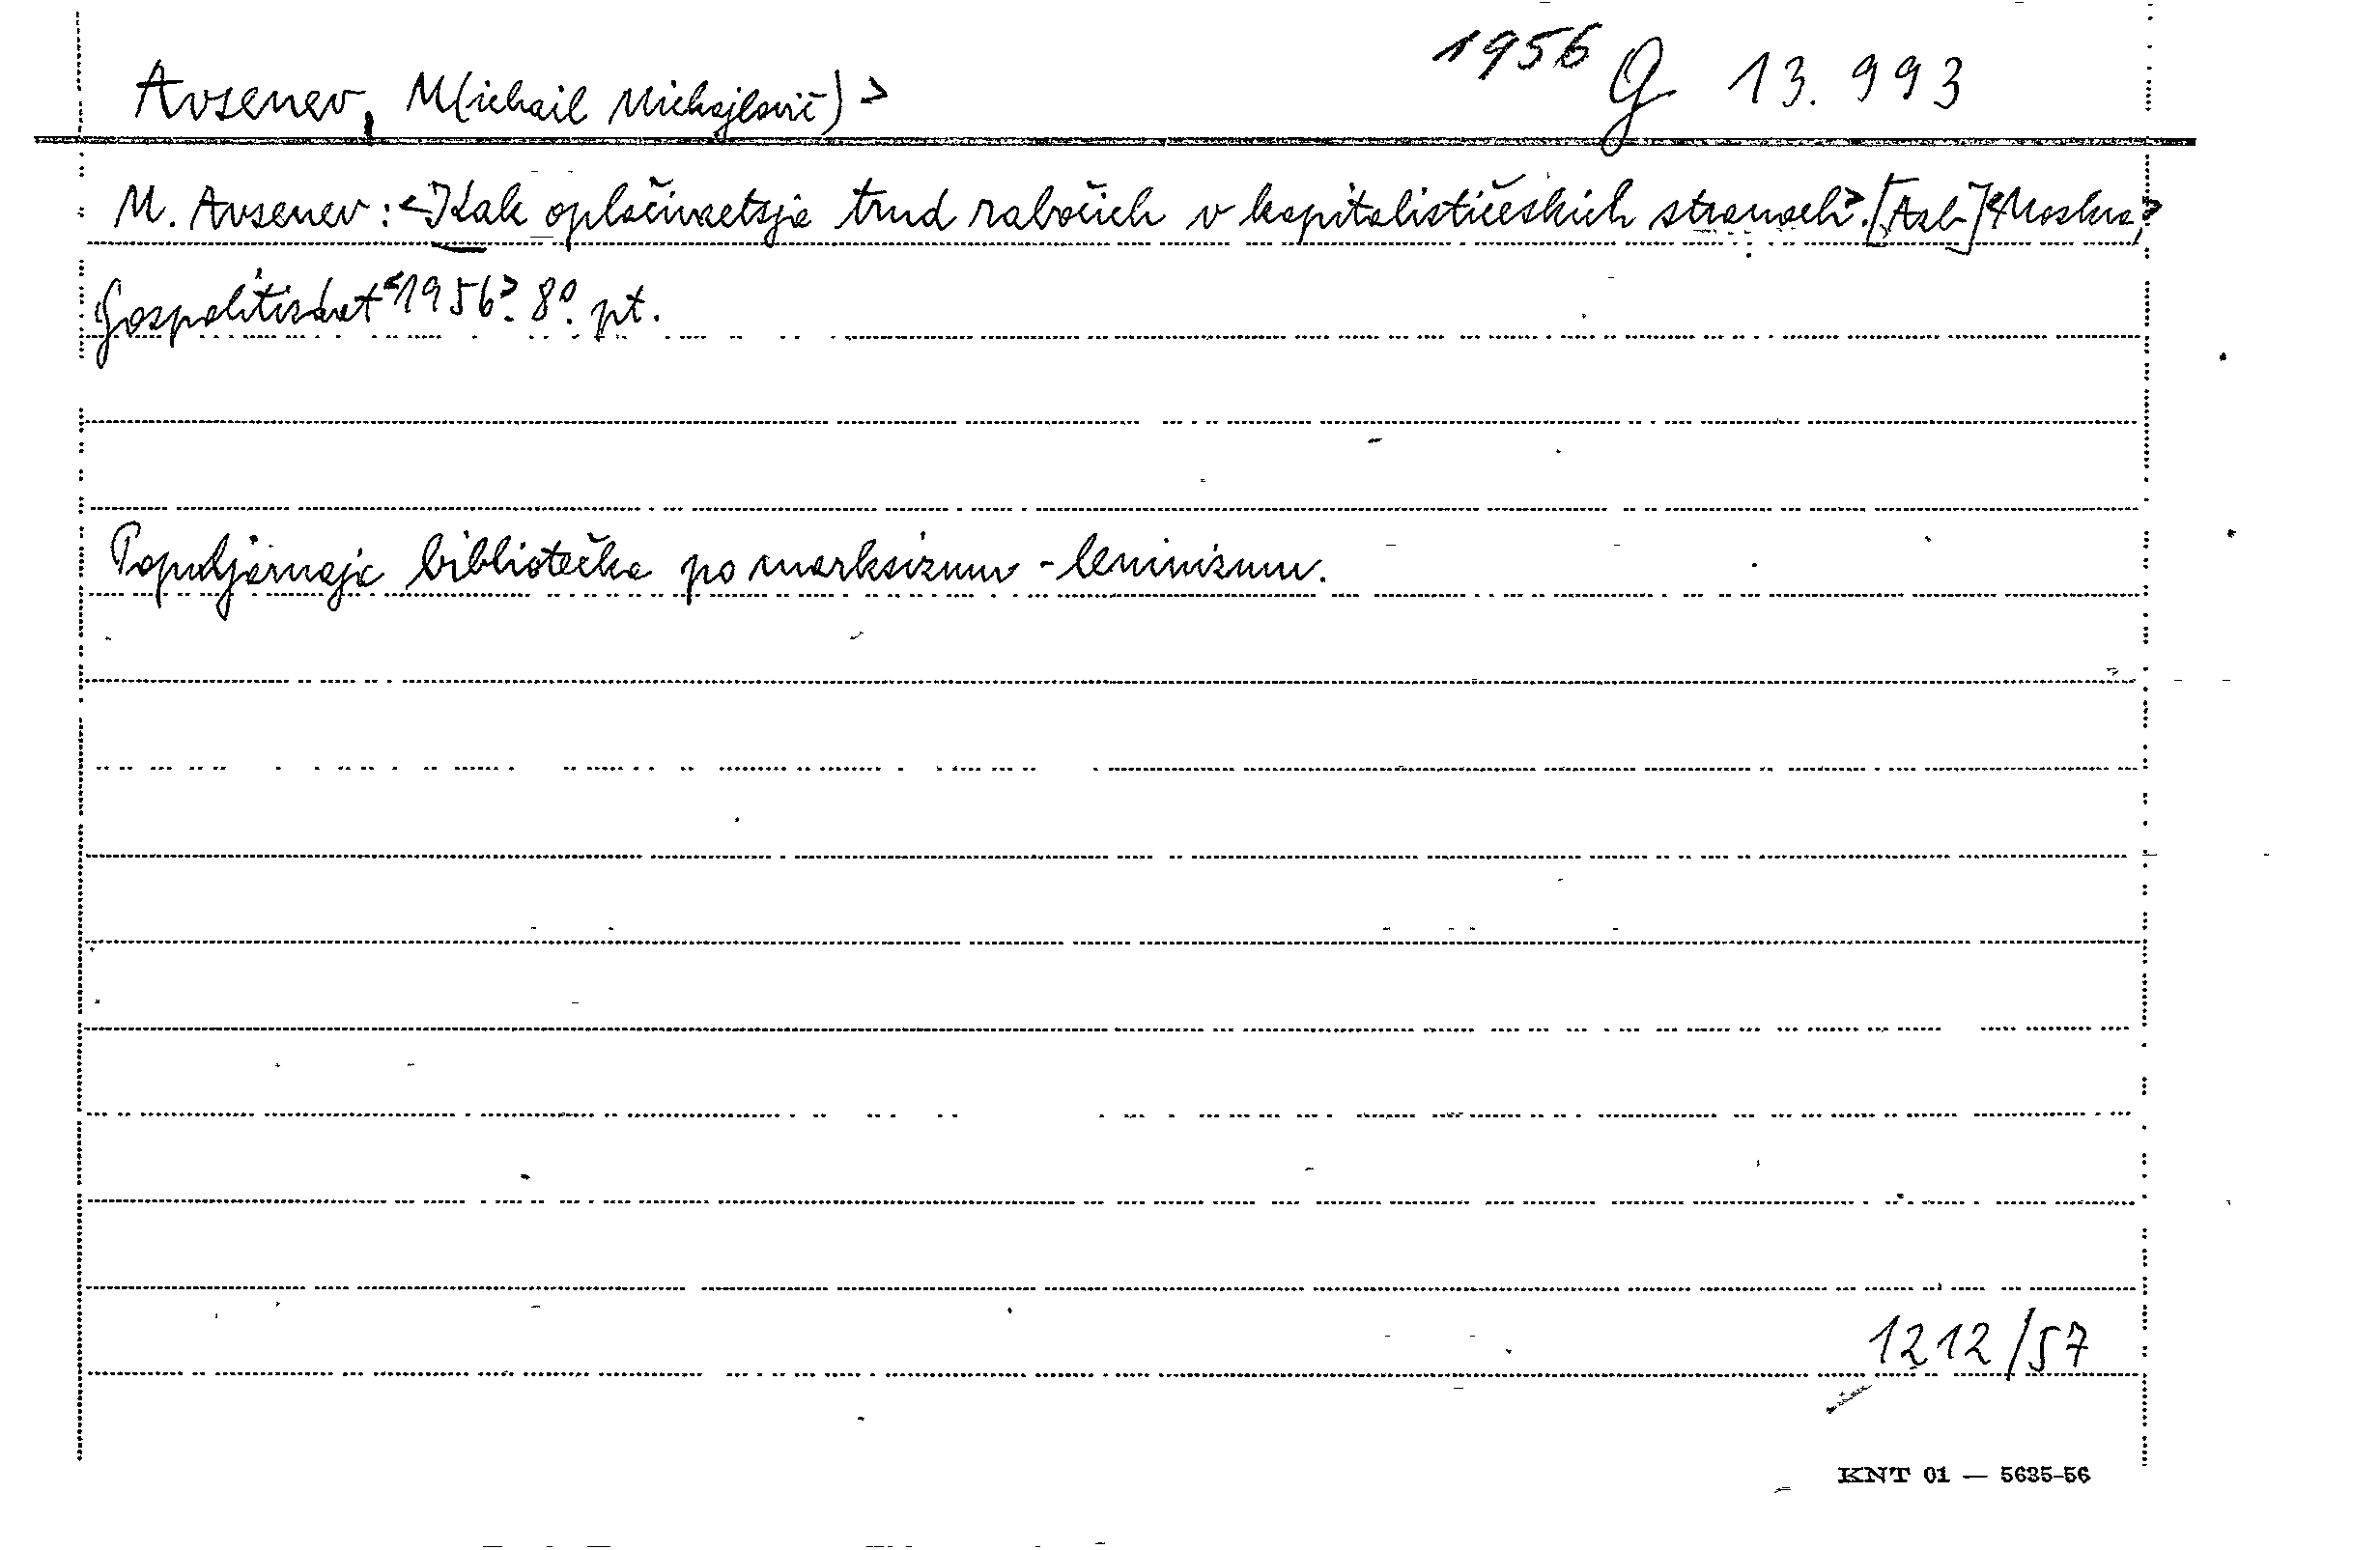 1956 G 13.993
Avsenev, M(ichail Michajlovič) >
M. Avsenev: <Kak oplačivaetsja trud rabočich v kapitalističeskich stranach>. [Azb.] <Moskva,>
Gospolitizdat <1956>. 8°. pt.
Populjarnaja bibliotečka po marksizmu-leninizmu.
1212/57
KNT 01 — 5635-56